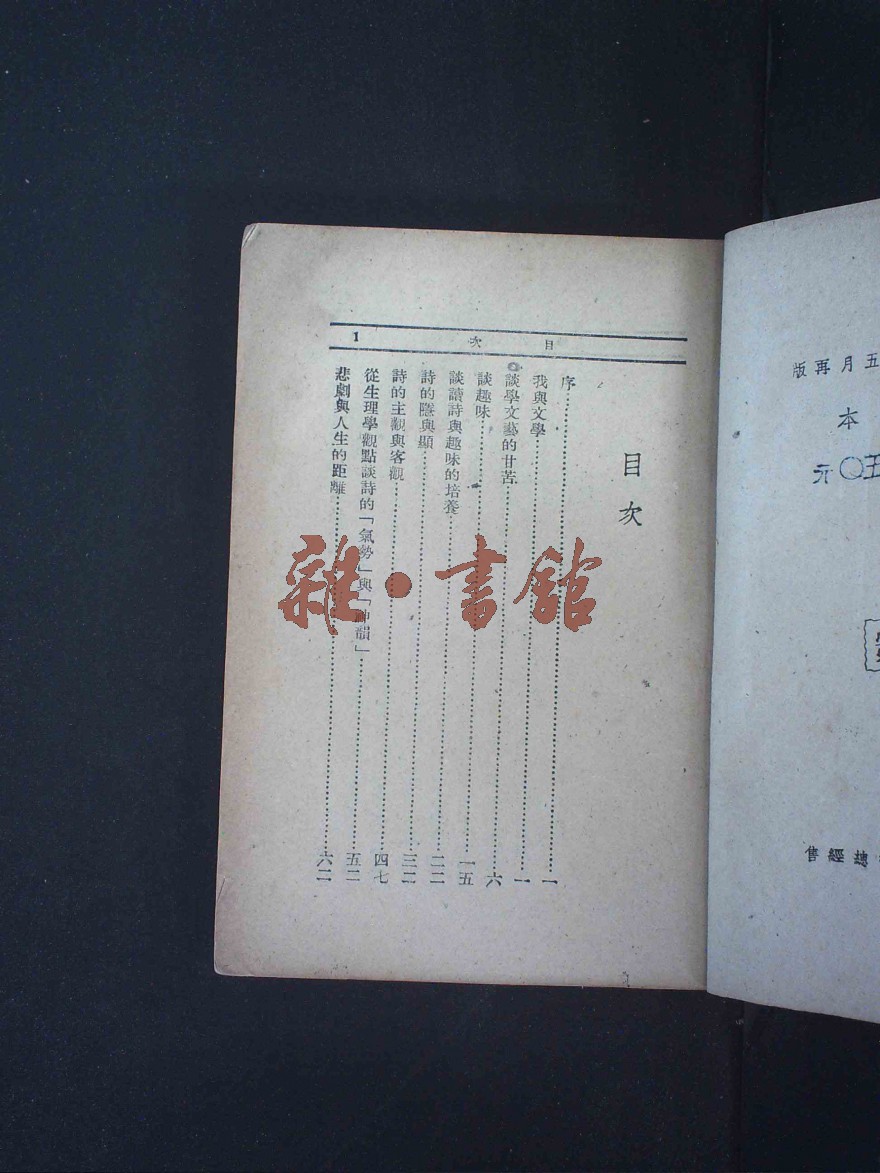 目次 1
目次
序……一
我與文學……一
談學文藝的甘苦……六
談趣味……一五
談讀詩與趣味的培養……二二
詩的隱與顯……三二
詩的主觀與客觀……四七
從生理學觀點談詩的「氣勢」與「神韻」……五二
悲劇與人生的距離……六二
五月再版
本
五〇元
總經售
雜·書館